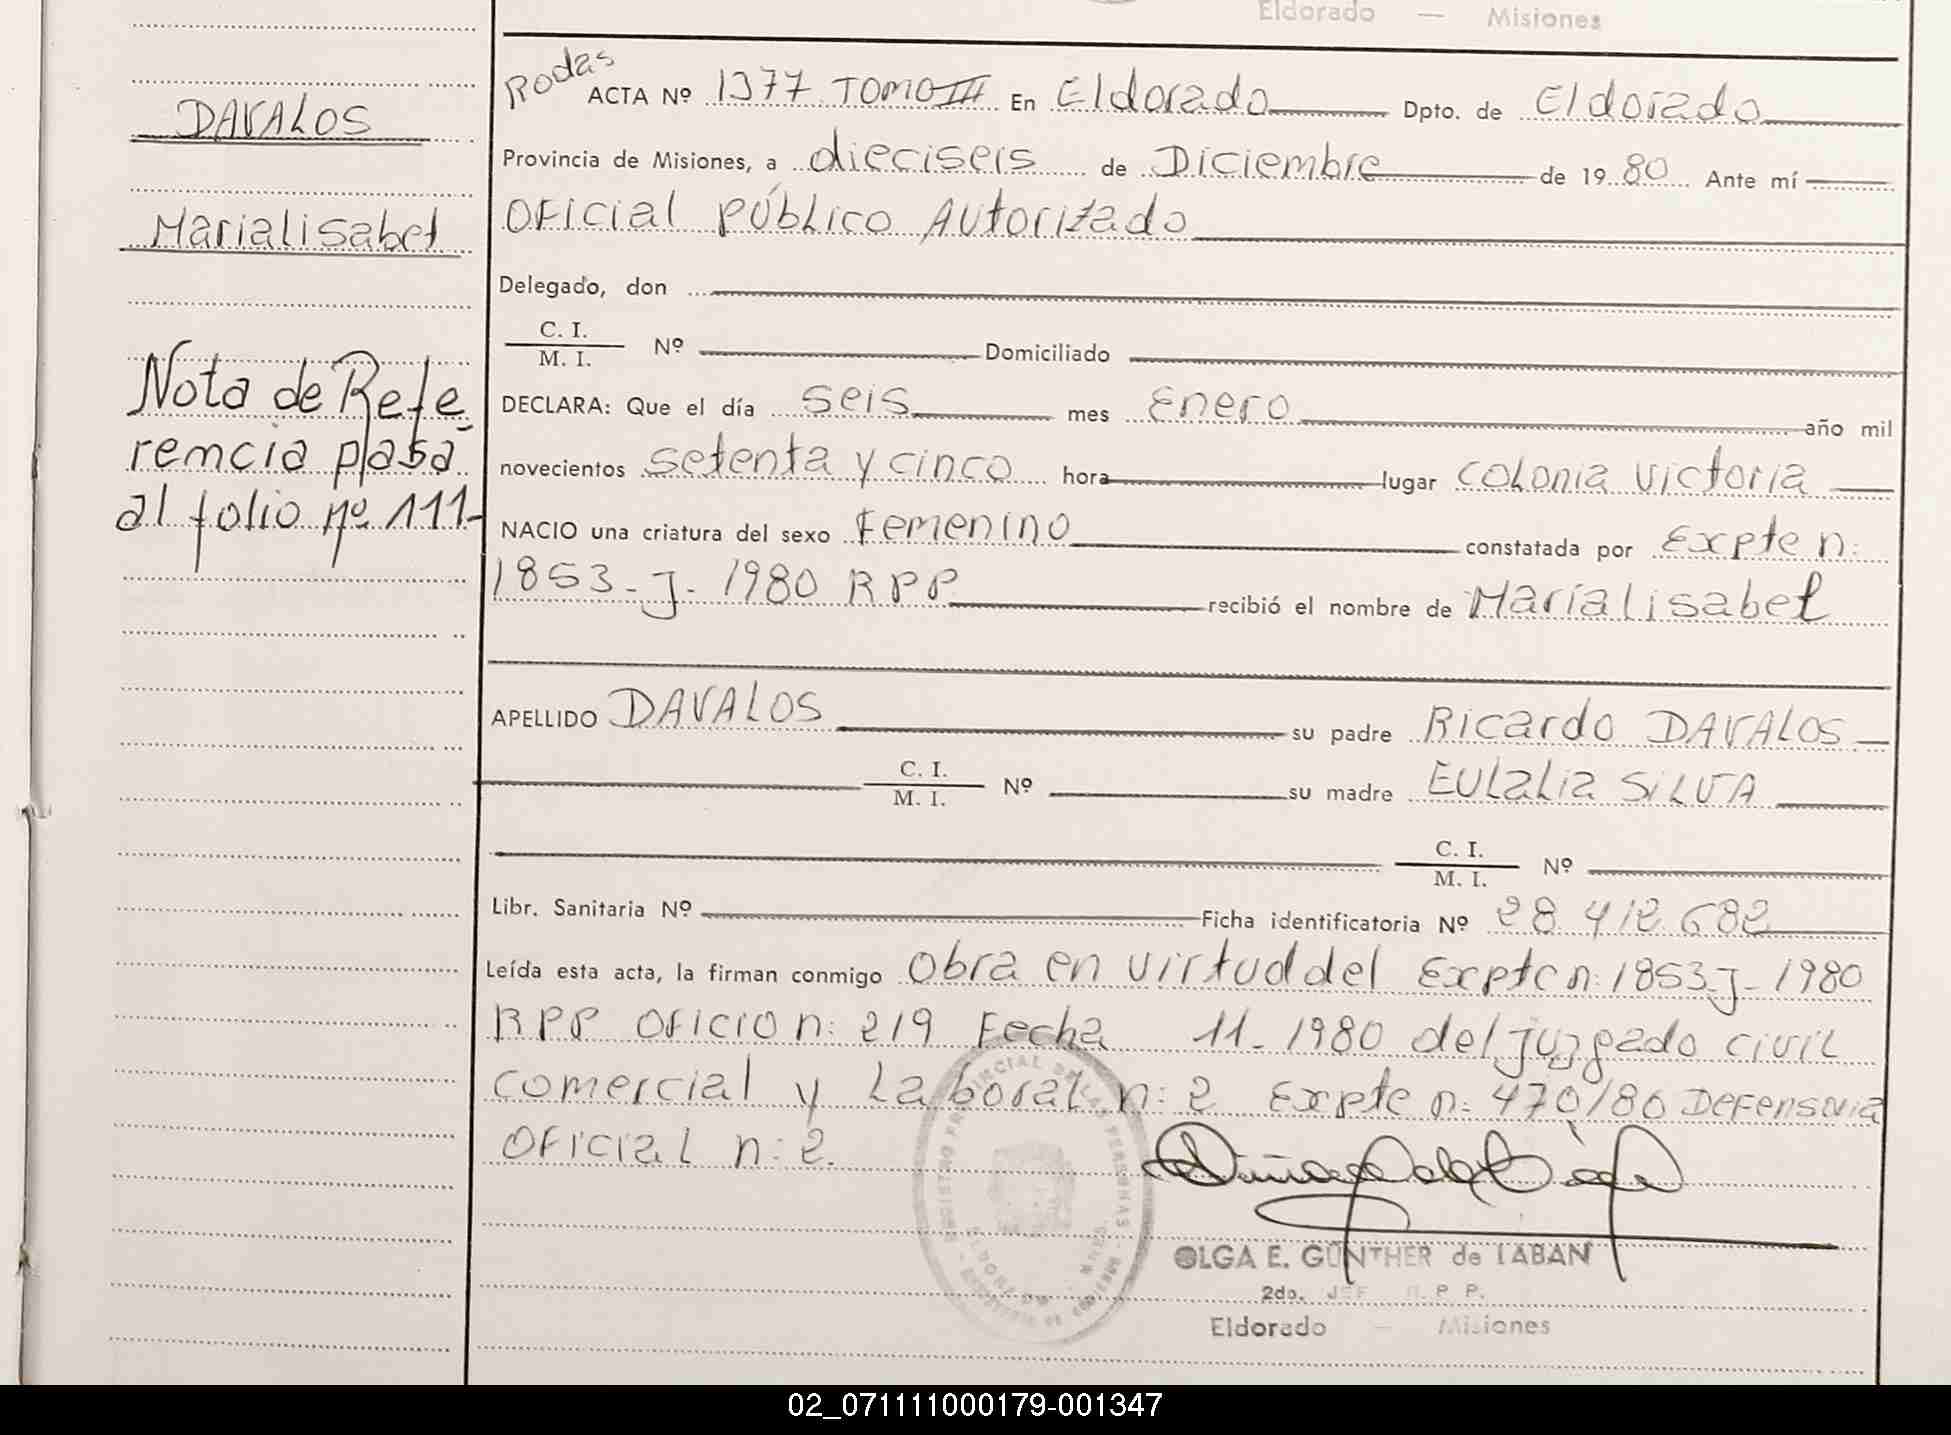 Eldorado — Misiones
Rodas
ACTA Nº 1377 TOMO III En Eldorado Dpto. de Eldorado
DAVALOS
Provincia de Misiones, a dieciseis de Diciembre de 19 80 Ante mí
Marialisabet
OFicial PÚBLico Autorizado
Delegado, don
C. I.
M. I. Nº Domiciliado
Nota de Refe
DECLARA: Que el día seis mes Enero año mil
remcia pasa
novecientos setenta y cinco hora lugar COLONIA Victoria
al folio nº 111-
NACIO una criatura del sexo Femenino constatada por Expte n:
1853-J-1980 RPP recibió el nombre de Marialisabet
APELLIDO DAVALOS su padre Ricardo DAVALOS
C. I.
M. I. Nº su madre EULALIA SILVA
C. I.
M. I. Nº
Libr. Sanitaria Nº Ficha identificatoria Nº 28.412.682
Leída esta acta, la firman conmigo Obra en virtud del Expte n: 1853-J-1980
RPP OFICIO n: 219 Fecha 11-1980 del juzgado civil
comercial y Laboral n: 2 Expte n: 470/80 DEFENSORIA
OFICIAL n: 2.
REGISTRO PROVINCIAL DE LAS PERSONAS
OLGA E. GÜNTHER de LABAN
2do. JEF R. P. P.
Eldorado — Misiones
02_071111000179-001347